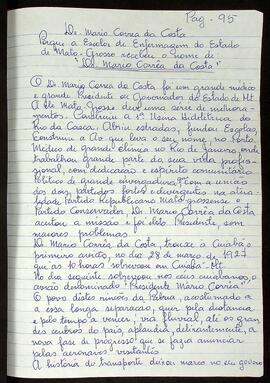 Pág. 95
Dr. Mario Corrêa da Costa
Porque a Escola de Enfermagem do Estado
de Mato-Grosso recebeu o nome de
"Dr. Mario Corrêa da Costa"
O Dr. Mário Corrêa da Costa foi um grande médico
e grande Presidente ou Governador do Estado de Mt
A ele Mato Grosso deve uma série de melhora-
mentos. Construiu a 1ª Usina Hidrelétrica do
Rio da Casca. Abriu estradas, fundou Escolas,
Construiu a que leva o seu nome, no Porto.
Médico de grande clínica no Rio de Janeiro, onde
trabalhou grande parte da sua vida profis-
sional, com dedicação e espírito comunitário.
Político de grande envergadura. Com a união
dos dois partidos fortes divergentes na atua-
lidade Partido Republicano Mato-grossense e
Partido Conservador, Dr. Mario Corrêa da Costa
aceitou a missão e foi eleito Presidente, sem
maiores problemas.
Dr. Mario Corrêa da Costa, trouxe à Cuiabá o
primeiro avião, no dia 28 de março de 1927
que às 10 horas sobrevoou em Cuiabá - Mt.
No dia seguinte sobrevoou nos céus cuiabanos, o
avião denominado "Presidente Mário Corrêa"
O povo destes rincões da Pátria, acostumado a
a essa longa separação, quer pela distância
e pelo tempo a vencer, via fluvial, até os gran
des centros do país, aplaudiu, delirantemente, a
nova fase de progresso que se fazia anunciar
pelas aeronaves visitantes.
A história do transporte deixou marco no seu governo